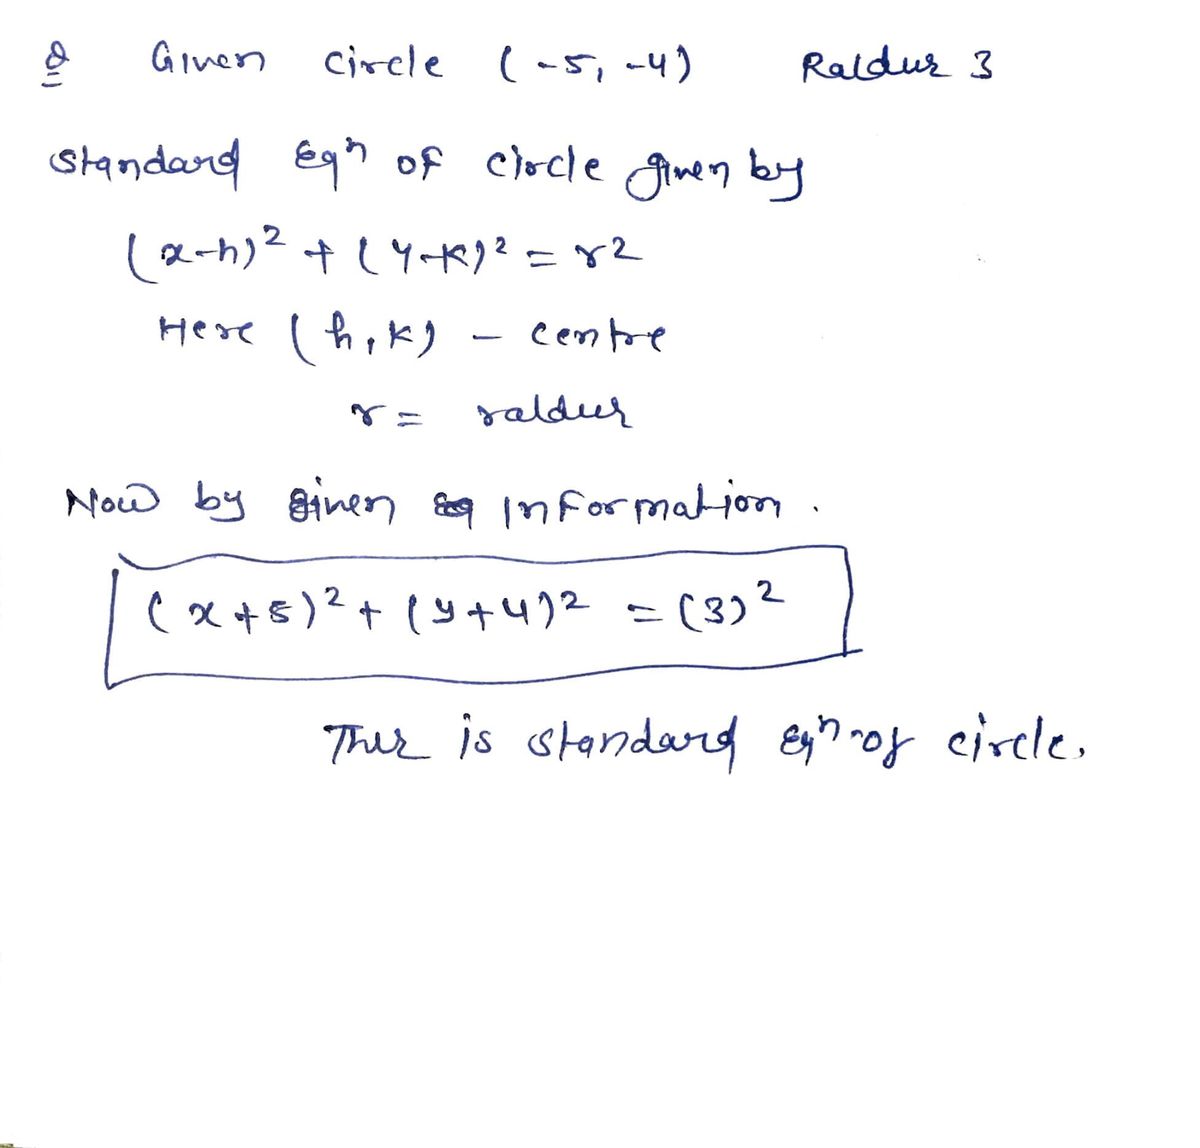 Q Given circle (-5, -4) Raidus 3
standard Eqn of circle given by
(x-h)² + (y-k)² = r²
Here (h, k) - centre
r = raidus
Now by given information.
(x+5)² + (y+4)² = (3)²
This is standard Eqn of circle.